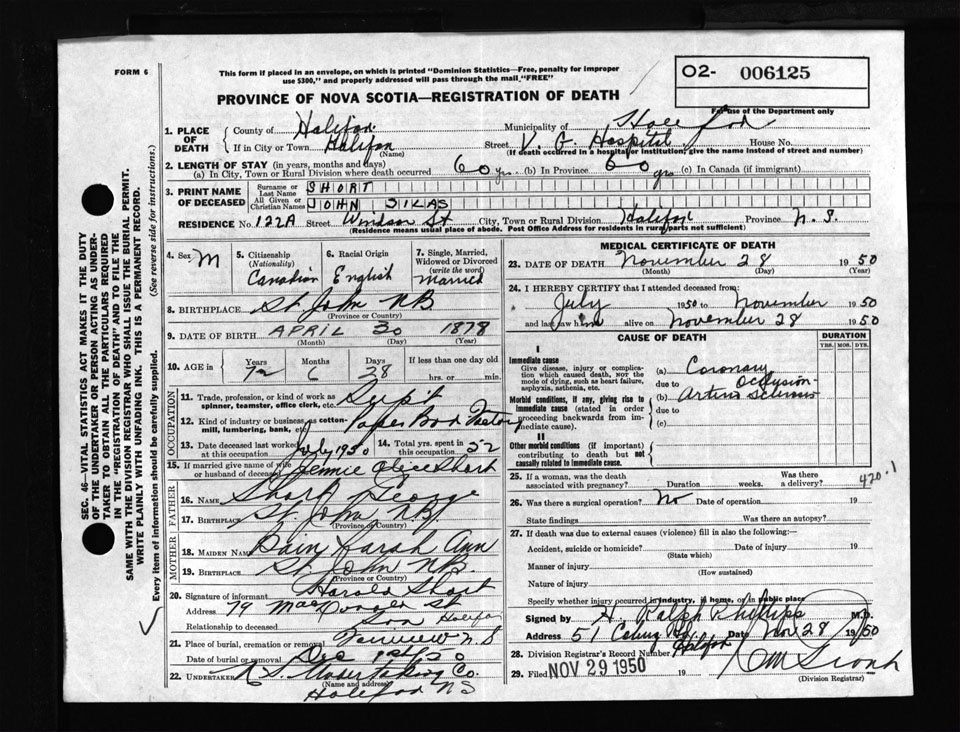 FORM 6
This form if placed in an envelope, on which is printed "Dominion Statistics—Free, penalty for improper
use $300," and properly addressed will pass through the mail "FREE"
O2- 006125
For use of the Department only
PROVINCE OF NOVA SCOTIA—REGISTRATION OF DEATH
1. PLACE OF DEATH
County of Halifax Municipality of
If in City or Town Halifax Street V. G. Hospital House No.
(Name) (If death occurred in a hospital or institution, give the name instead of street and number)
2. LENGTH OF STAY (in years, months and days)
(a) In City, Town or Rural Division where death occurred 60 yrs. (b) In Province 60 yrs (c) In Canada (if immigrant)
3. PRINT NAME OF DECEASED
Surname or Last Name SHORT
All Given or Christian Names JOHN SILAS
RESIDENCE No. 122A Street Windsor St City, Town or Rural Division Halifax Province N.S.
(Residence means usual place of abode. Post Office Address for residents in rural parts not sufficient)
4. Sex M
5. Citizenship (Nationality) Canadian
6. Racial Origin English
7. Single, Married, Widowed or Divorced (write the word) Married
8. BIRTHPLACE St John NB
(Province or Country)
9. DATE OF BIRTH APRIL 30 1878
(Month) (Day) (Year)
10. AGE in Years Months Days If less than one day old
72 6 28 hrs. or min.
OCCUPATION
11. Trade, profession, or kind of work as
spinner, teamster, office clerk, etc. Supt
12. Kind of industry or business, as cotton-
mill, lumbering, bank, etc. Paper Box Factory
13. Date deceased last worked
at this occupation July 1950
14. Total yrs. spent in
this occupation 52
15. If married give name of wife
or husband of deceased Jennie Alice Short
FATHER
16. Name Short George
17. Birthplace St John N.B.
(Province or Country)
MOTHER
18. Maiden Name Bain Sarah Ann
19. Birthplace St John NB.
(Province or Country)
20. Signature of informant Harold Short
Address 79 St
Relationship to deceased Son Halifax
21. Place of burial, cremation or removal Fairview N.S
Date of burial or removal Dec 1st/50
22. UNDERTAKER N.S. Undertaking Co.
(Name and address)
Halifax NS
MEDICAL CERTIFICATE OF DEATH
23. DATE OF DEATH November 28 1950
(Month) (Day) (Year)
24. I HEREBY CERTIFY that I attended deceased from:
July 1950 to November 1950
and last saw him alive on November 28 1950
CAUSE OF DEATH
DURATION
YRS. MOS. DYS.
I
Immediate cause
Give disease, injury or complica-
tion which caused death, NOT the
mode of dying, such as heart failure,
asphyxia, asthenia, etc.
(a) Coronary
due to Occlusion
Morbid conditions, if any, giving rise to
immediate cause (stated in order
proceeding backwards from im-
mediate cause).
(b) Arterio Sclerosis
due to
(c)
II
Other morbid conditions (if important)
contributing to death but not
causally related to immediate cause.
420.1
25. If a woman, was the death
associated with pregnancy? Duration weeks. Was there
a delivery?
26. Was there a surgical operation? No Date of operation 19
State findings Was there an autopsy?
27. If death was due to external causes (violence) fill in also the following:—
Accident, suicide or homicide? Date of injury 19
(State which)
Manner of injury
(How sustained)
Nature of injury
Specify whether injury occurred in industry, in home, or in public place
Signed by H. Ralph Phillips M.D.
Address 51 Coburg Rd Halifax Date Nov 28 1950
28. Division Registrar's Record Number
29. Filed NOV 29 1950 19
(Division Registrar)
SEC. 46—VITAL STATISTICS ACT MAKES IT THE DUTY
OF THE UNDERTAKER OR PERSON ACTING AS UNDER-
TAKER TO OBTAIN ALL THE PARTICULARS REQUIRED
IN THE "REGISTRATION OF DEATH" AND TO FILE THE
SAME WITH THE DIVISION REGISTRAR WHO SHALL ISSUE THE BURIAL PERMIT.
WRITE PLAINLY WITH UNFADING INK. THIS IS A PERMANENT RECORD.
Every item of information should be carefully supplied. (See reverse side for instructions.)